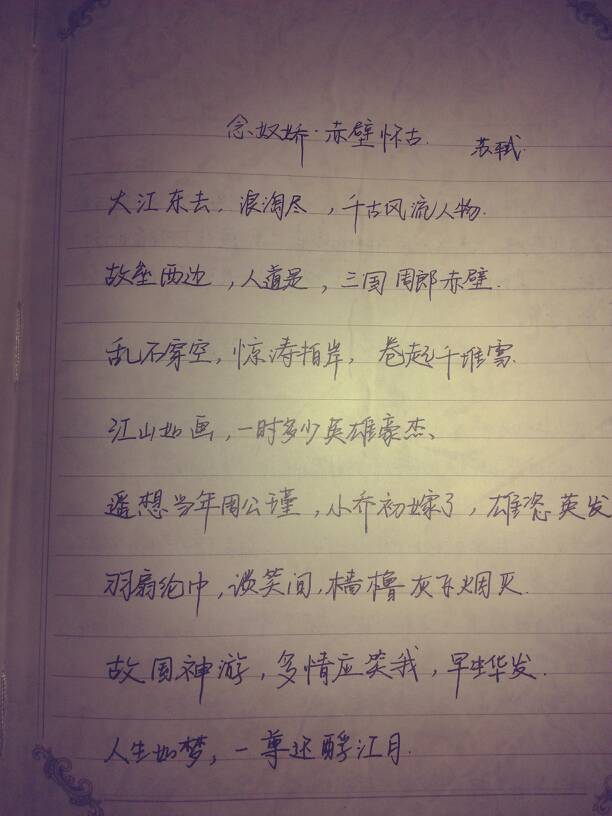 念奴娇·赤壁怀古. 苏轼
大江东去,浪淘尽,千古风流人物.
故垒西边,人道是,三国周郎赤壁.
乱石穿空,惊涛拍岸,卷起千堆雪.
江山如画,一时多少英雄豪杰、
遥想当年周公瑾,小乔初嫁了,雄姿英发
羽扇纶巾,谈笑间,樯橹灰飞烟灭.
故国神游,多情应笑我,早生华发.
人生如梦,一尊还酹江月.